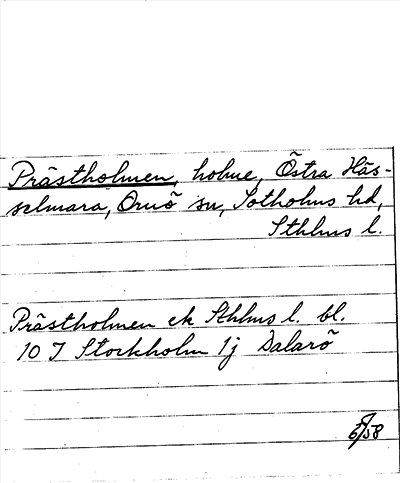 Prästholmen, holme, Östra Häs-
selmara, Ornö sn, Sotholms hd,
Sthlms l.
Prästholmen ek Sthlms l. bl.
10 I Stockholm 1j Dalarö
6/58